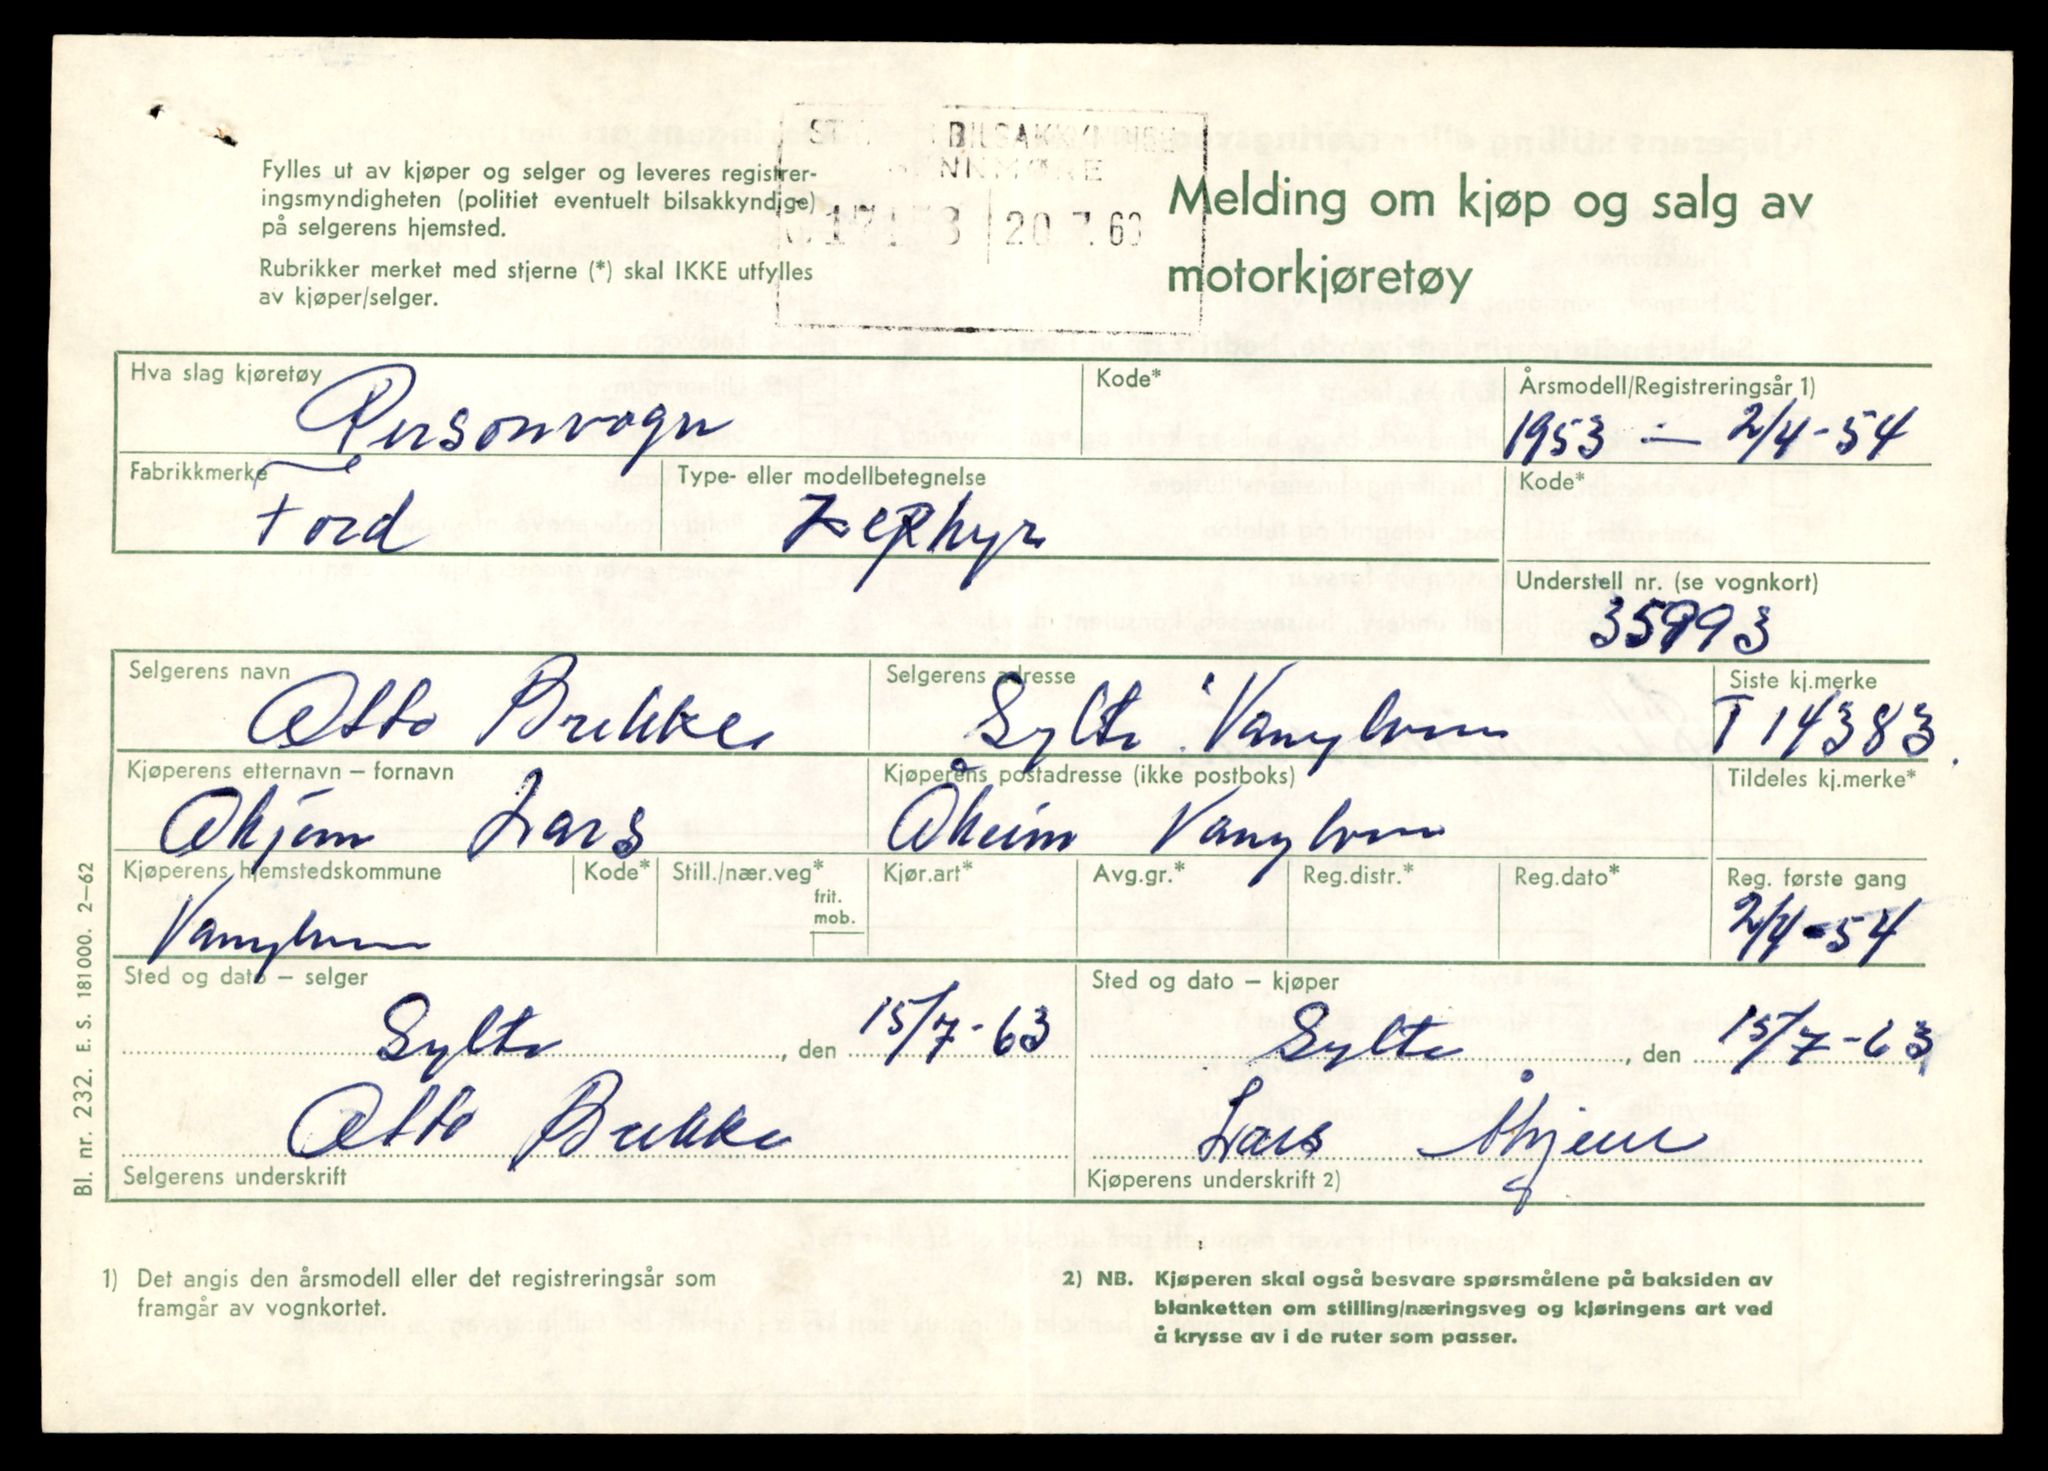 BILSAKKYNDIGE
NNMØRE
20 7 63
Fylles ut av kjøper og selger og leveres registrer-
ingsmyndigheten (politiet eventuelt bilsakkyndige)
på selgerens hjemsted.
Rubrikker merket med stjerne (*) skal IKKE utfylles
av kjøper/selger.
Melding om kjøp og salg av
motorkjøretøy
Hva slag kjøretøy
Personvogn
Kode*
Årsmodell/Registreringsår 1)
1953 — 2/4-54
Fabrikkmerke
Ford
Type- eller modellbetegnelse
Zephyr
Kode*
Understell nr. (se vognkort)
35993
Selgerens navn
Otto Brekke
Selgerens adresse
Sylte Vanylven
Siste kj.merke
T 14383
Kjøperens etternavn – fornavn
Åhjem Lars
Kjøperens postadresse (ikke postboks)
Åheim Vanylven
Tildeles kj.merke*
Kjøperens hjemstedskommune
Vanylven
Kode*
Still./nær.veg*
frit.
mob.
Kjør.art*
Avg.gr.*
Reg.distr.*
Reg.dato*
Reg. første gang
2/4-54
Sted og dato – selger
Sylte, den 15/7-63
Otto Brekke
Selgerens underskrift
Sted og dato – kjøper
Sylte, den 15/7-63
Lars Åhjem
Kjøperens underskrift 2)
1) Det angis den årsmodell eller det registreringsår som
framgår av vognkortet.
2) NB. Kjøperen skal også besvare spørsmålene på baksiden av
blanketten om stilling/næringsveg og kjøringens art ved
å krysse av i de ruter som passer.
Bl. nr. 232. E. S. 181000. 2–62